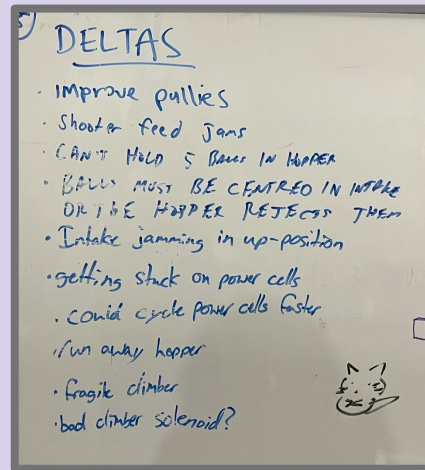 5)
DELTAS
· improve pullies
· Shooter feed jams
· CAN'T HOLD 5 BALLS IN HOPPER
· BALLS MUST BE CENTRED IN INTAKE
OR THE HOPPER REJECTS THEM
· Intake jamming in up-position
· getting stuck on power cells
· could cycle power cells faster
· run away hopper
· fragile climber
· bad climber solenoid?